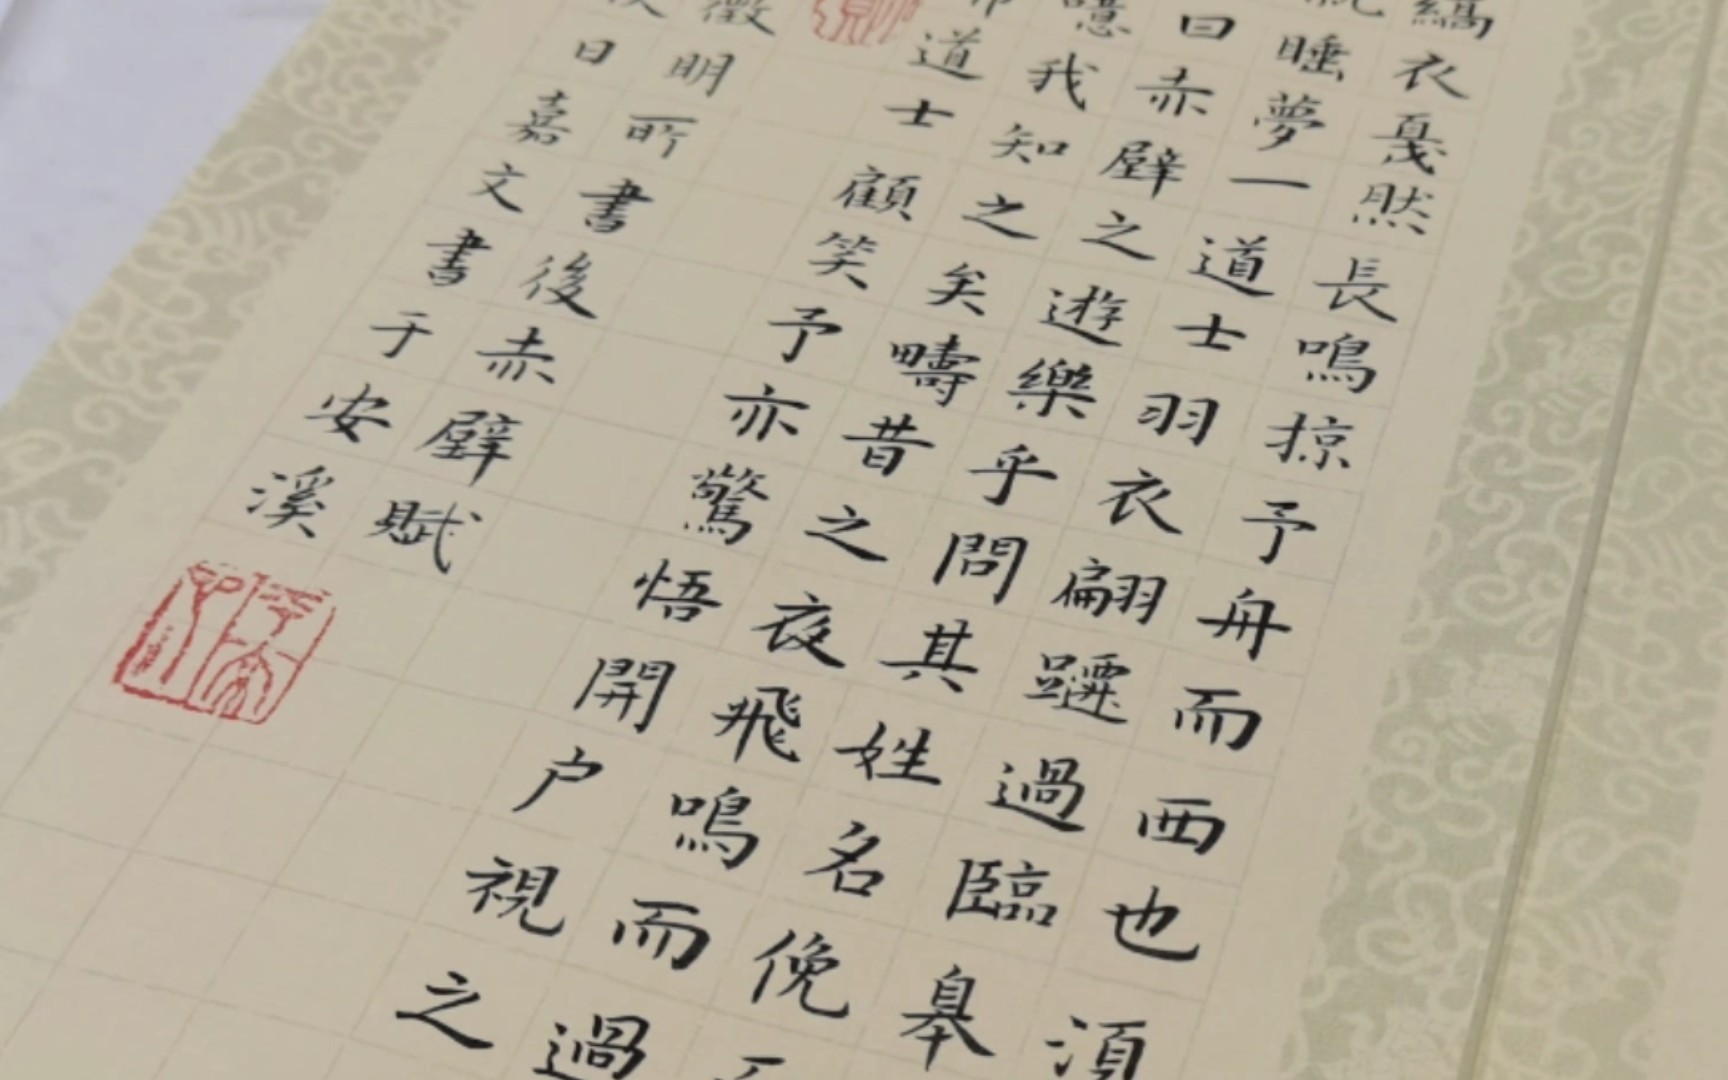 縞衣戛然長鳴掠予舟而西也須
睡夢一道士羽衣翩躚過臨皋
曰赤壁之遊樂乎問其姓名俛
噫我知之矣疇昔之夜飛鳴而過
道士顧笑予亦驚悟開户視之
徵明所書後赤壁賦
日嘉文書于安溪